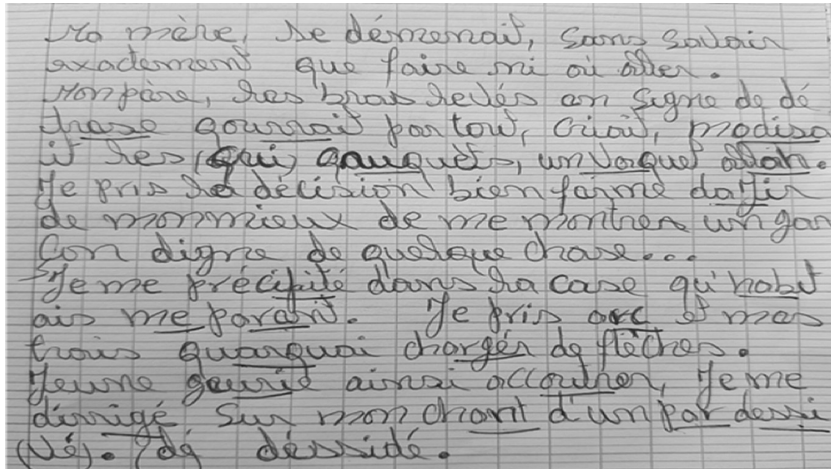 Ma mère, se démenait, sans savoir
exadement que faire ni où aller.
Mon père, les bras levés en signe de dé
trase gourrait partout, criait, modiso
it les (qui) gauquets, un vaque allah.
Je pris la décision bien farme dafir
de mon mieux de me montrer un gar
con digne de quelque chose...
Je me précipité dans la case qu'habit
ais me parant. Je pris arc et mes
trois quarquai chargés de flèches.
Jeune geurié ainsi accouther, Je me
dirrigé sur mon chant d'un par dessi
(Vé). dé dérsidé.